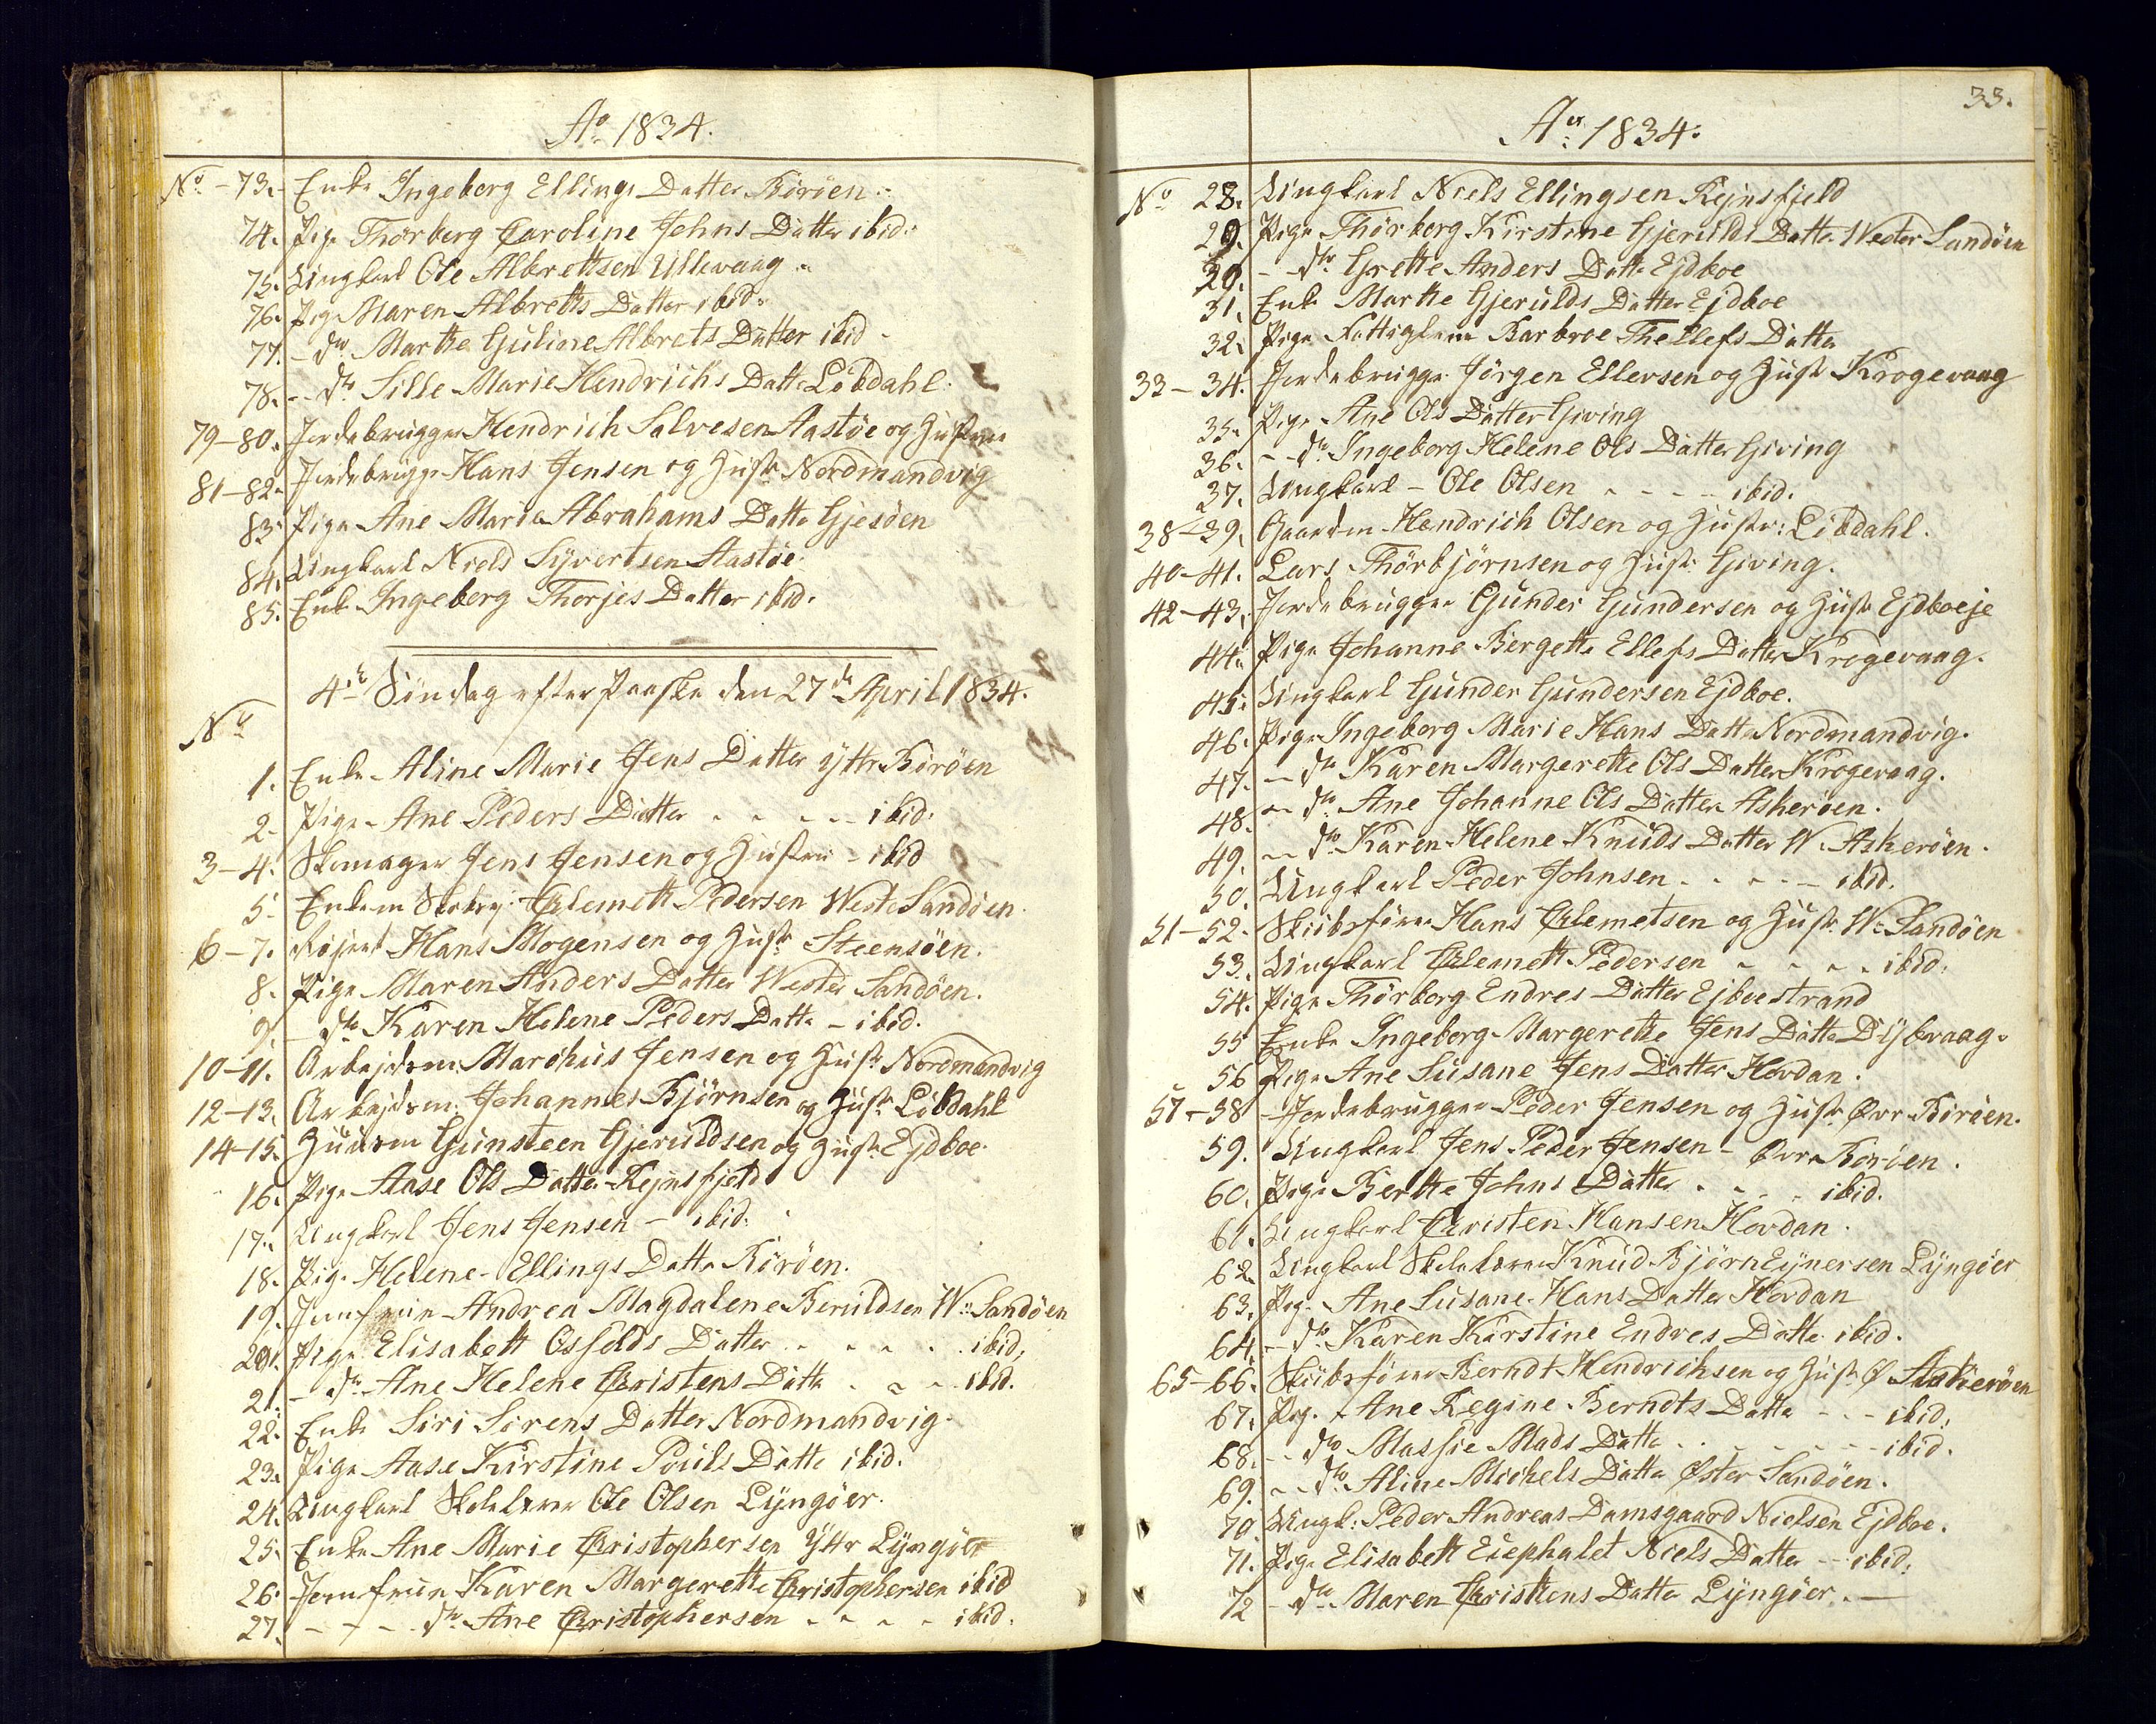 Ao 1834.
No - 73. Enke Ingeborg Ellings Datter Böröen.
74. Pige Thorberg Caroline Johns Datter ibid.
75. Ungkarl Ole Albrettsen Ullevaag
76. Pige Maren Albretts Datter ibid.
77. - do Marthe Guline Albrets Datter ibid
78. - do Sille Marie Hendrichs Datte Libdahl.
79-80. Jordebrugger Hendrich Salvesen Aastøe og Hustrue
81-82. Jordebrugge Hans Jensen og Hustr Nordmandvig
83. Pige Ane Marie Abrahams Datte Gjesöen
84. Ungkarl Niels Syvertsen Aastøe
85. Enke Ingeborg Thorjes Datter ibid.
4de Söndag efter Paaske den 27de April 1834.
No
1. Enke Aline Marie Jens Datter yttr Börøen
2. Pige Ane Peders Datter - - - ibid.
3-4. Skomager Jens Jensen og Hustrue - ibid
5. Enkem Clemett Pedersen Weste Sandöen
6-7. Hans Mogensen og Hustr Steensöen.
8. Pige Maren Anders Datter Wester Sandöen.
9. - do Karen Helene Peders Datte - ibid.
10-11. Arbejdsm Marchus Jensen og Hustr Nordmandvig
12-13. Arbejdsm. Johannes Bjørnsen og Hustr Libdahl
14-15. Huusm Gunsteen Gjeruldsen og Hustr Ejdboe.
16. Pige Aase Ols Datter Rejnsfjeld
17. Ungkarl Jens Jensen - ibid.
18. Pige Helene Ellings Datte Börøen.
19. Jomfrue Andrea Magdalene Beruldsen W. Sandöen
20. Pige Elisabett Osfolds Datter - - - ibid.
21. - do Ane Helene Christens Datte - - - ibid.
22. Enke Siri Sörens Datter Nordmandvig.
23. Pige Aase Kirstine Pouls Datte ibid.
24. Ungkarl Skolelærer Ole Olsen Lyngöer.
25. Enke Ane Marie Christophersen Yttr Lyngöer
26. Jomfrue Karen Margerethe Christophersen ibid
27. - - - do Ane Christophersen - - - ibid.
33.
Ao 1834.
No 28. Ungkarl Niels Ellingsen Rejnsfjeld
29. Pige Thörberg Kirstine Gjerulds Datte Wester Sandöen
30. - do Grethe Anders Datte Ejdboe
31. Enke Marthe Gjerulds Datter Ejdboe
32. Pige Fattiglem Barbroe Thellefs Datter
33-34. Jordebrugge Jörgen Ellevsen og Hustr Krogevaag
35. Pige Ane Ols Datter Giving
36. - do Ingeborg Helene Ols Datter Giving
37. Ungkarl - Ole Olsen - - - - ibid.
38-39. Gaardm Hendrich Olsen og Hustr: Libdahl.
40-41. Lars Thörbjörnsen og Hustr Giving.
42-43. Jordebrugger Gunder Gundersen og Hustr Ejdboeje
44. Pige Johanne Bergette Ellefs Datter Krogevaag.
45. Ungkarl Gunder Gundersen Ejdboe.
46. Pige Ingeborg Marie Hans Datte Nordmandvig.
47. - do Karen Margerette Ols Datter Krogevaag.
48. - do Ane Johanne Ols Datter Askeröen.
49. - do Karen Helene Knuds Datter W. Askeröen.
50. Ungkarl Peder Johnsen - - - - ibid.
51-52. Skibsförer Hans Clemetsen og Hustr W. Sandöen
53. Ungkarl Clemett Pedersen - - - - ibid.
54. Pige Thörborg Endres Datter Ejboestrand
55 Enke Ingeborg Margerethe Jens Datte Dybvaag.
56 Pige Ane Susane Jens Datter Hovdan.
57-58 Jordebrugger Peder Jensen og Hustr Øvr Börøen.
59. Ungkarl Jens Peder Jensen - Øvre Boröen.
60. Pige Berthe Johns Datter - - - ibid.
61. Ungkarl Christen Hansen Hovdan.
62. Ungkarl Skolelærer Knud Bjørn Eynersen Lyngöer
63. Pige Ane Susane Hans Datter Hovdan
64. - do Karen Kirstine Endres Datte ibid.
65-66. Skibsförer Berndt Hendrichsen og Hustr Ø Askeröen
67. Pige Ane Regine Berndts Datte - - ibid.
68. - do Massie Mads Datte - - - - ibid.
69. - do Aline Michels Datte Øster Sandöen.
70. Ungk: Peder Andreas Damsgaard Nielsen Ejdboe.
71. Pige Elisabett Niels Datter - ibid.
72 - do Maren Christens Datte Lyngöer.